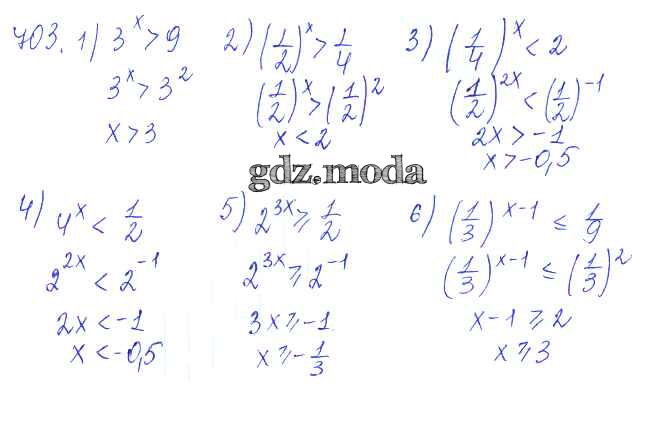 703. 1) 3^x > 9
3^x > 3^2
x > 3
2) (1/2)^x > 1/4
(1/2)^x > (1/2)^2
x < 2
3) (1/4)^x < 2
(1/2)^{2x} < (1/2)^{-1}
2x > -1
x > -0,5
gdz.moda
4) 4^x < 1/2
2^{2x} < 2^{-1}
2x < -1
x < -0,5
5) 2^{3x} ⩾ 1/2
2^{3x} ⩾ 2^{-1}
3x ⩾ -1
x ⩾ -1/3
6) (1/3)^{x-1} ≤ 1/9
(1/3)^{x-1} ≤ (1/3)^2
x-1 ⩾ 2
x ⩾ 3